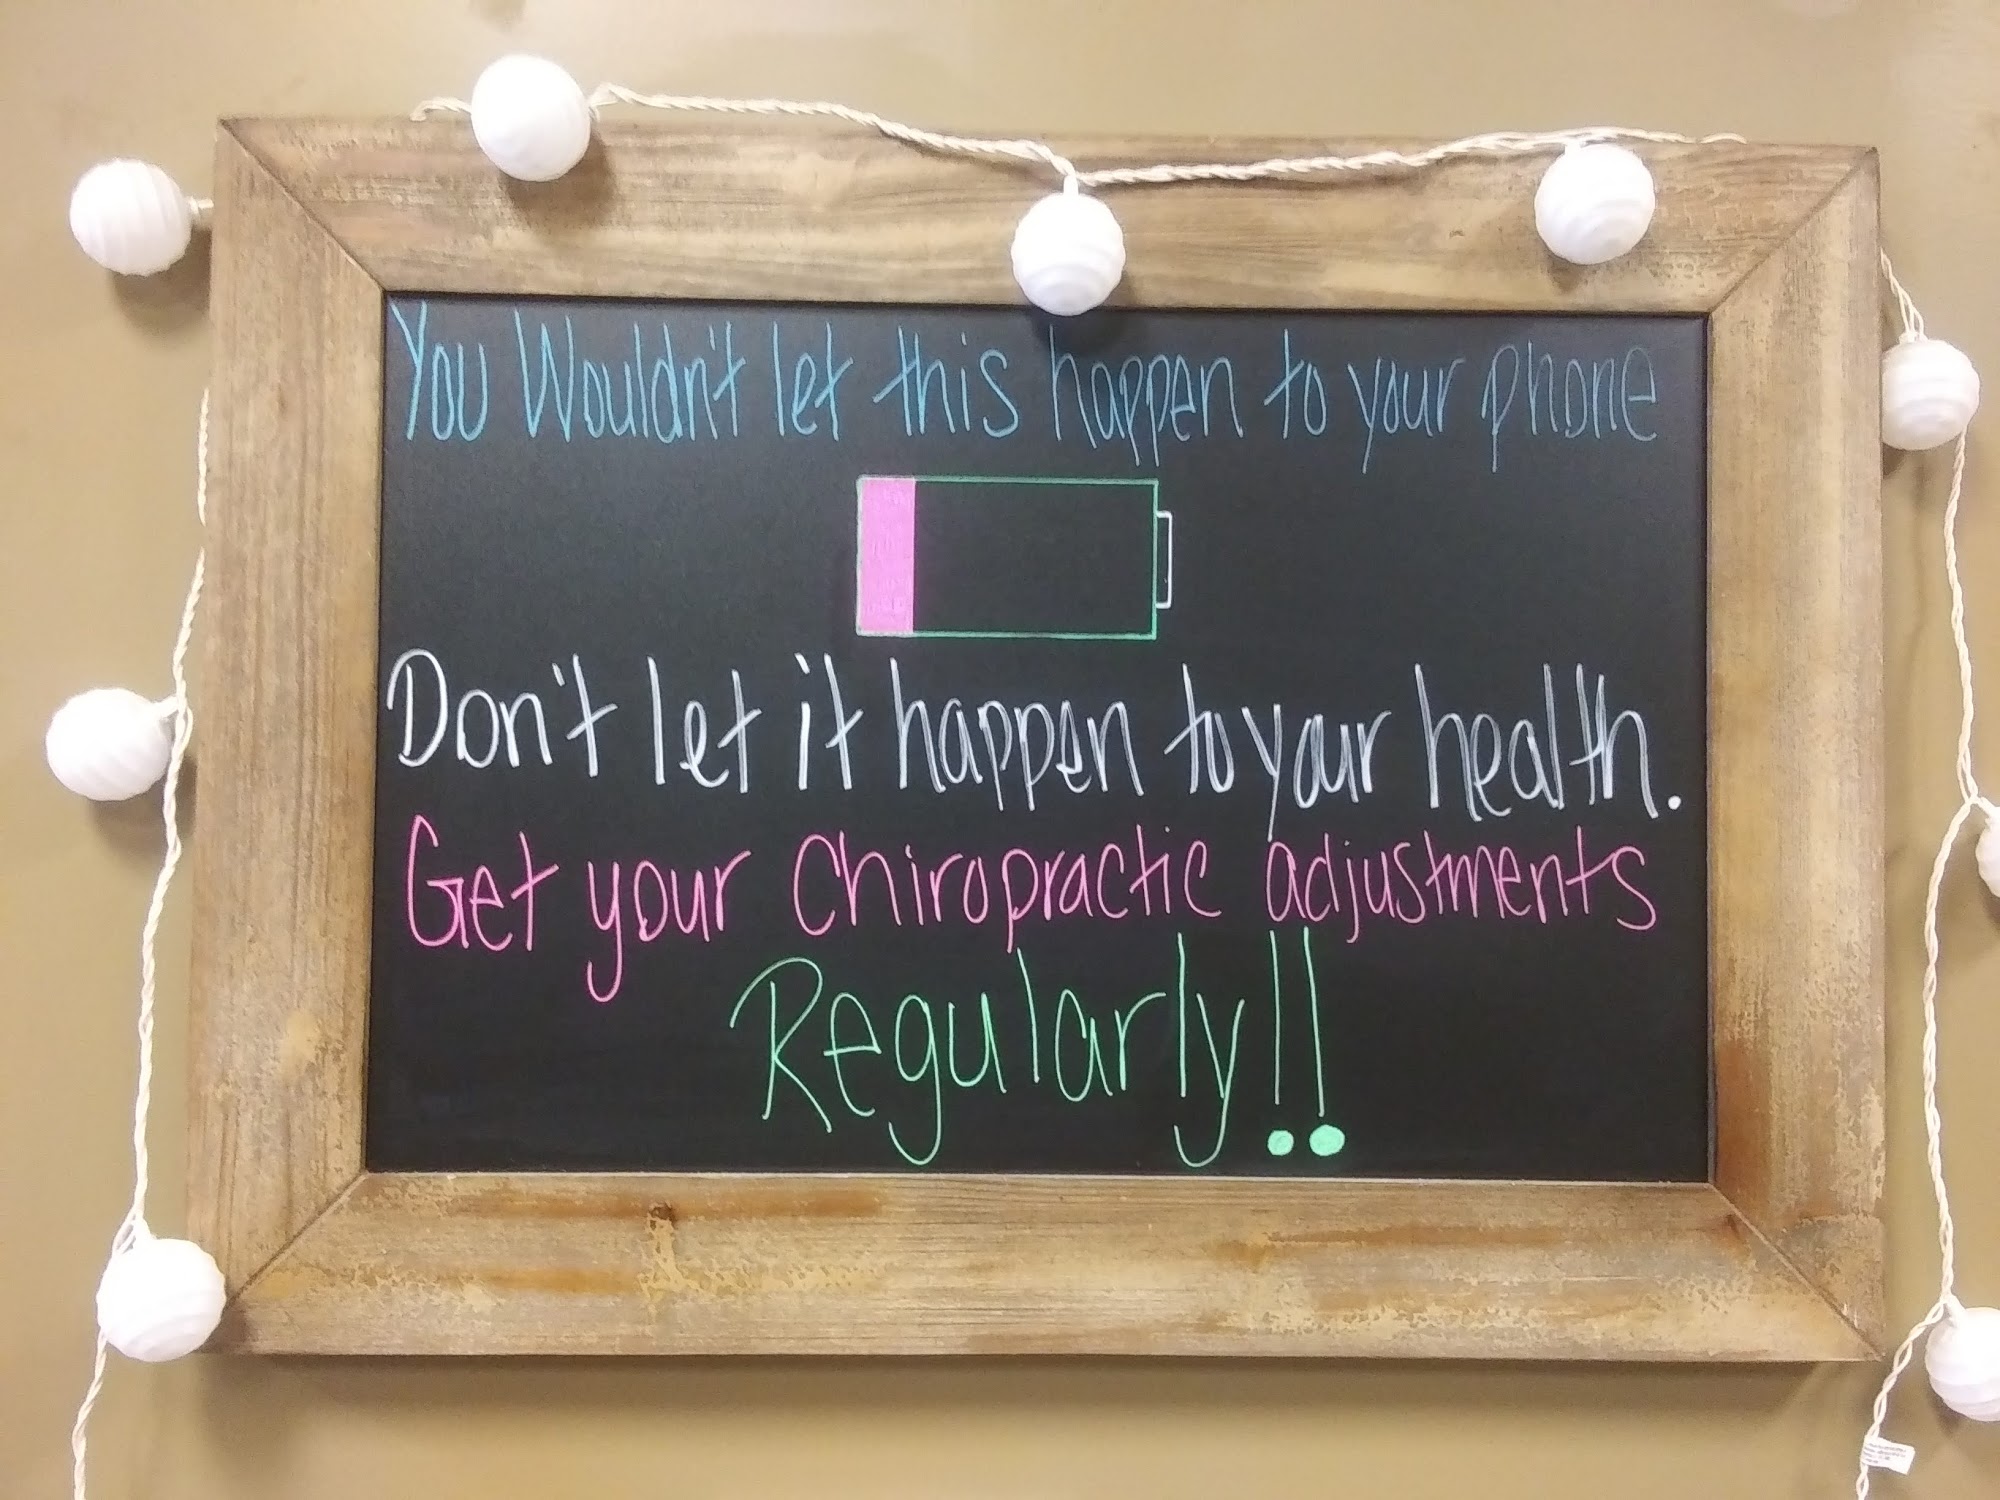 You Wouldn't let this happen to your phone
Don't let it happen to your health.
Get your Chiropractic adjustments
Regularly!!